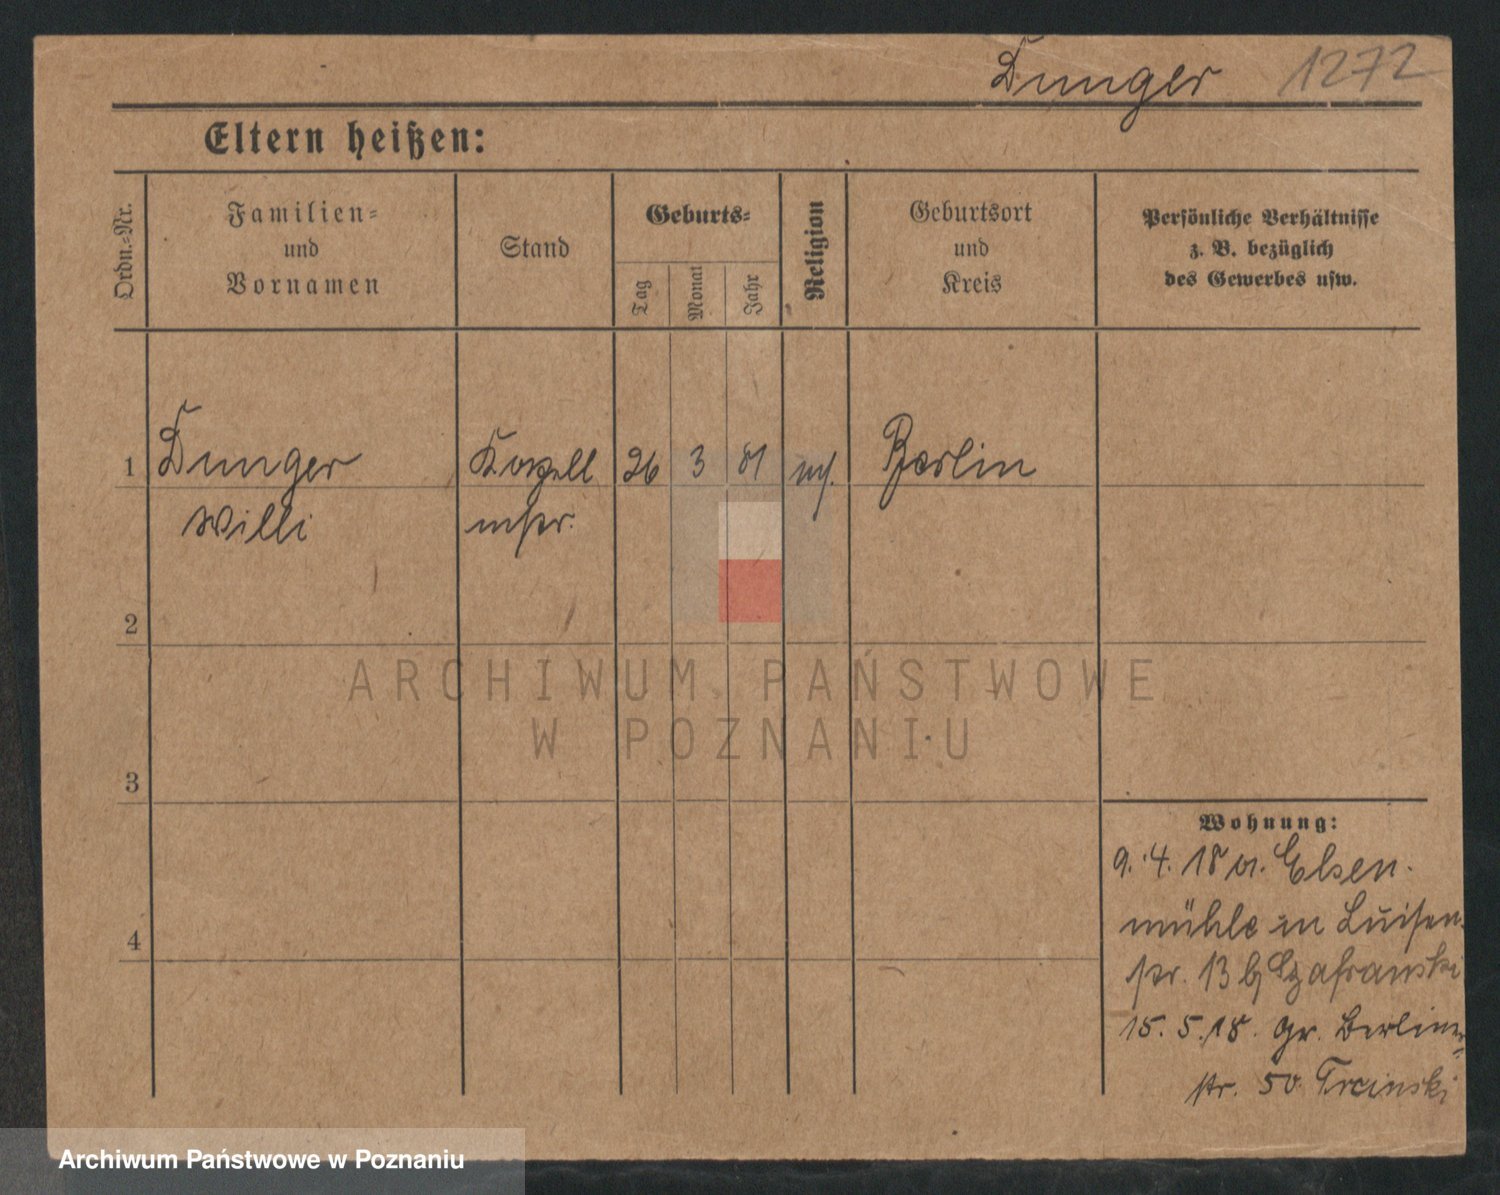 Dunger 1272
Eltern heißen:
Ordn.-Nr.
Familien-
und
Vornamen
Stand
Geburts-
Tag
Monat
Jahr
Religion
Geburtsort
und
Kreis
Persönliche Verhältnisse
z. B. bezüglich
des Gewerbes usw.
1 Dunger Kapell 26 3 81 Berlin
Willi mstr.
2
3
4
Wohnung:
9. 4. 18 Elsen-
mühle in Luisen-
str. 13 b/ Szafranski
15. 5. 18. Gr. Berliner-
str. 50 Trcinski
ARCHIWUM PAŃSTWOWE
W POZNANIU
Archiwum Państwowe w Poznaniu